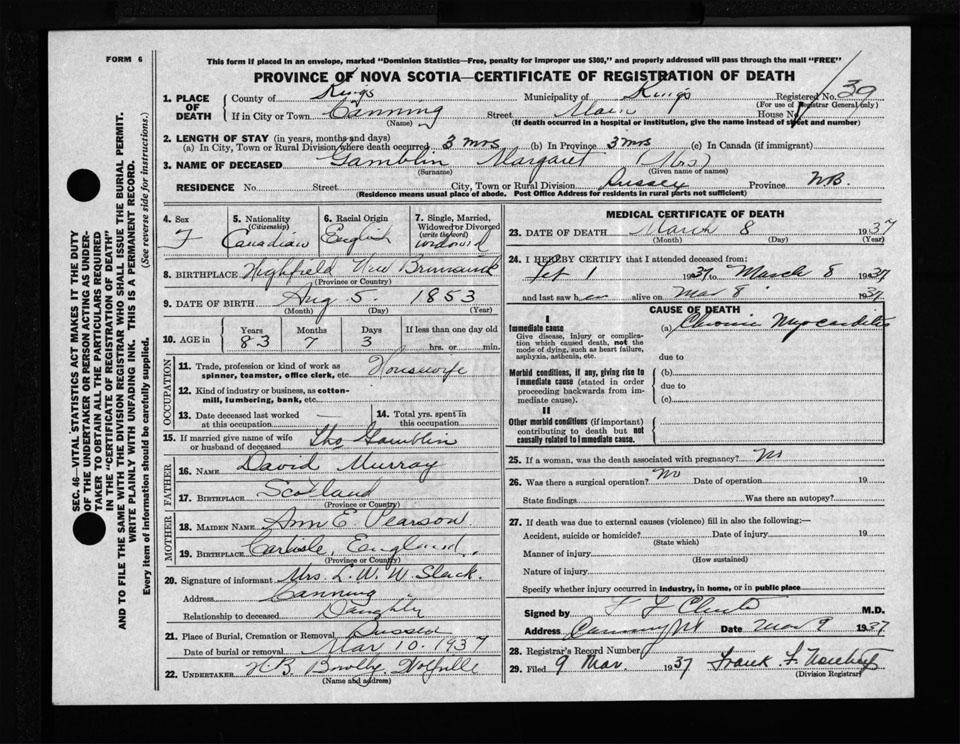 FORM 6
This form if placed in an envelope, marked "Dominion Statistics—Free, penalty for improper use $300," and properly addressed will pass through the mail "FREE"
PROVINCE OF NOVA SCOTIA—CERTIFICATE OF REGISTRATION OF DEATH
1. PLACE OF DEATH
County of Kings Municipality of Kings Registered No. 39
(For use of Registrar General only)
If in City or Town Canning Street Main House No.
(Name) (If death occurred in a hospital or institution, give the name instead of street and number)
2. LENGTH OF STAY (in years, months and days)
(a) In City, Town or Rural Division where death occurred 3 mos (b) In Province 3 mos (c) In Canada (if immigrant)
3. NAME OF DECEASED Gamblin Margaret (Mrs)
(Surname) (Given name or names)
RESIDENCE No. Street City, Town or Rural Division Sussex Province N.B.
(Residence means usual place of abode. Post Office Address for residents in rural parts not sufficient)
4. Sex F
5. Nationality (Citizenship) Canadian
6. Racial Origin English
7. Single, Married, Widowed or Divorced (write the word) widowed
8. BIRTHPLACE Highfield New Brunswick
(Province or Country)
9. DATE OF BIRTH Aug 5. 1853
(Month) (Day) (Year)
10. AGE in Years Months Days If less than one day old
83 7 3 hrs. or min.
OCCUPATION
11. Trade, profession or kind of work as spinner, teamster, office clerk, etc. Housewife
12. Kind of industry or business, as cotton-mill, lumbering, bank, etc.
13. Date deceased last worked at this occupation —
14. Total yrs. spent in this occupation
15. If married give name of wife or husband of deceased Tho Gamblin
FATHER
16. NAME David Murray
17. BIRTHPLACE Scotland
(Province or Country)
MOTHER
18. MAIDEN NAME Ann E. Pearson
19. BIRTHPLACE Carlisle, England.
(Province or Country)
20. Signature of informant Mrs. L. W. W. Slack.
Address Canning
Relationship to deceased Daughter
21. Place of Burial, Cremation or Removal Sussex
Date of burial or removal Mar 10. 1937
22. UNDERTAKER Wolfville
(Name and address)
MEDICAL CERTIFICATE OF DEATH
23. DATE OF DEATH March 8 1937
(Month) (Day) (Year)
24. I HEREBY CERTIFY that I attended deceased from:
Feb 1 1937 to March 8 1937
and last saw her alive on Mar 8 1937
CAUSE OF DEATH
I
Immediate cause
Give disease, injury or complication which caused death, not the mode of dying, such as heart failure, asphyxia, asthenia, etc.
(a) Chronic Myocarditis
due to
Morbid conditions, if any, giving rise to immediate cause (stated in order proceeding backwards from immediate cause).
(b)
due to
(c)
II
Other morbid conditions (if important) contributing to death but not causally related to immediate cause.
25. If a woman, was the death associated with pregnancy? No
26. Was there a surgical operation? No Date of operation 19
State findings Was there an autopsy?
27. If death was due to external causes (violence) fill in also the following:—
Accident, suicide or homicide? Date of injury 19
(State which)
Manner of injury
(How sustained)
Nature of injury
Specify whether injury occurred in industry, in home, or in public place
Signed by M.D.
Address Canning NS Date Mar 9 1937
28. Registrar's Record Number
29. Filed 9 Mar. 1937 Frank F.
(Division Registrar)
SEC. 46—VITAL STATISTICS ACT MAKES IT THE DUTY
OF THE UNDERTAKER OR PERSON ACTING AS UNDER-
TAKER TO OBTAIN ALL THE PARTICULARS REQUIRED
IN THE "CERTIFICATE OF REGISTRATION OF DEATH"
AND TO FILE THE SAME WITH THE DIVISION REGISTRAR WHO SHALL ISSUE THE BURIAL PERMIT.
WRITE PLAINLY WITH UNFADING INK. THIS IS A PERMANENT RECORD.
Every item of information should be carefully supplied. (See reverse side for instructions.)